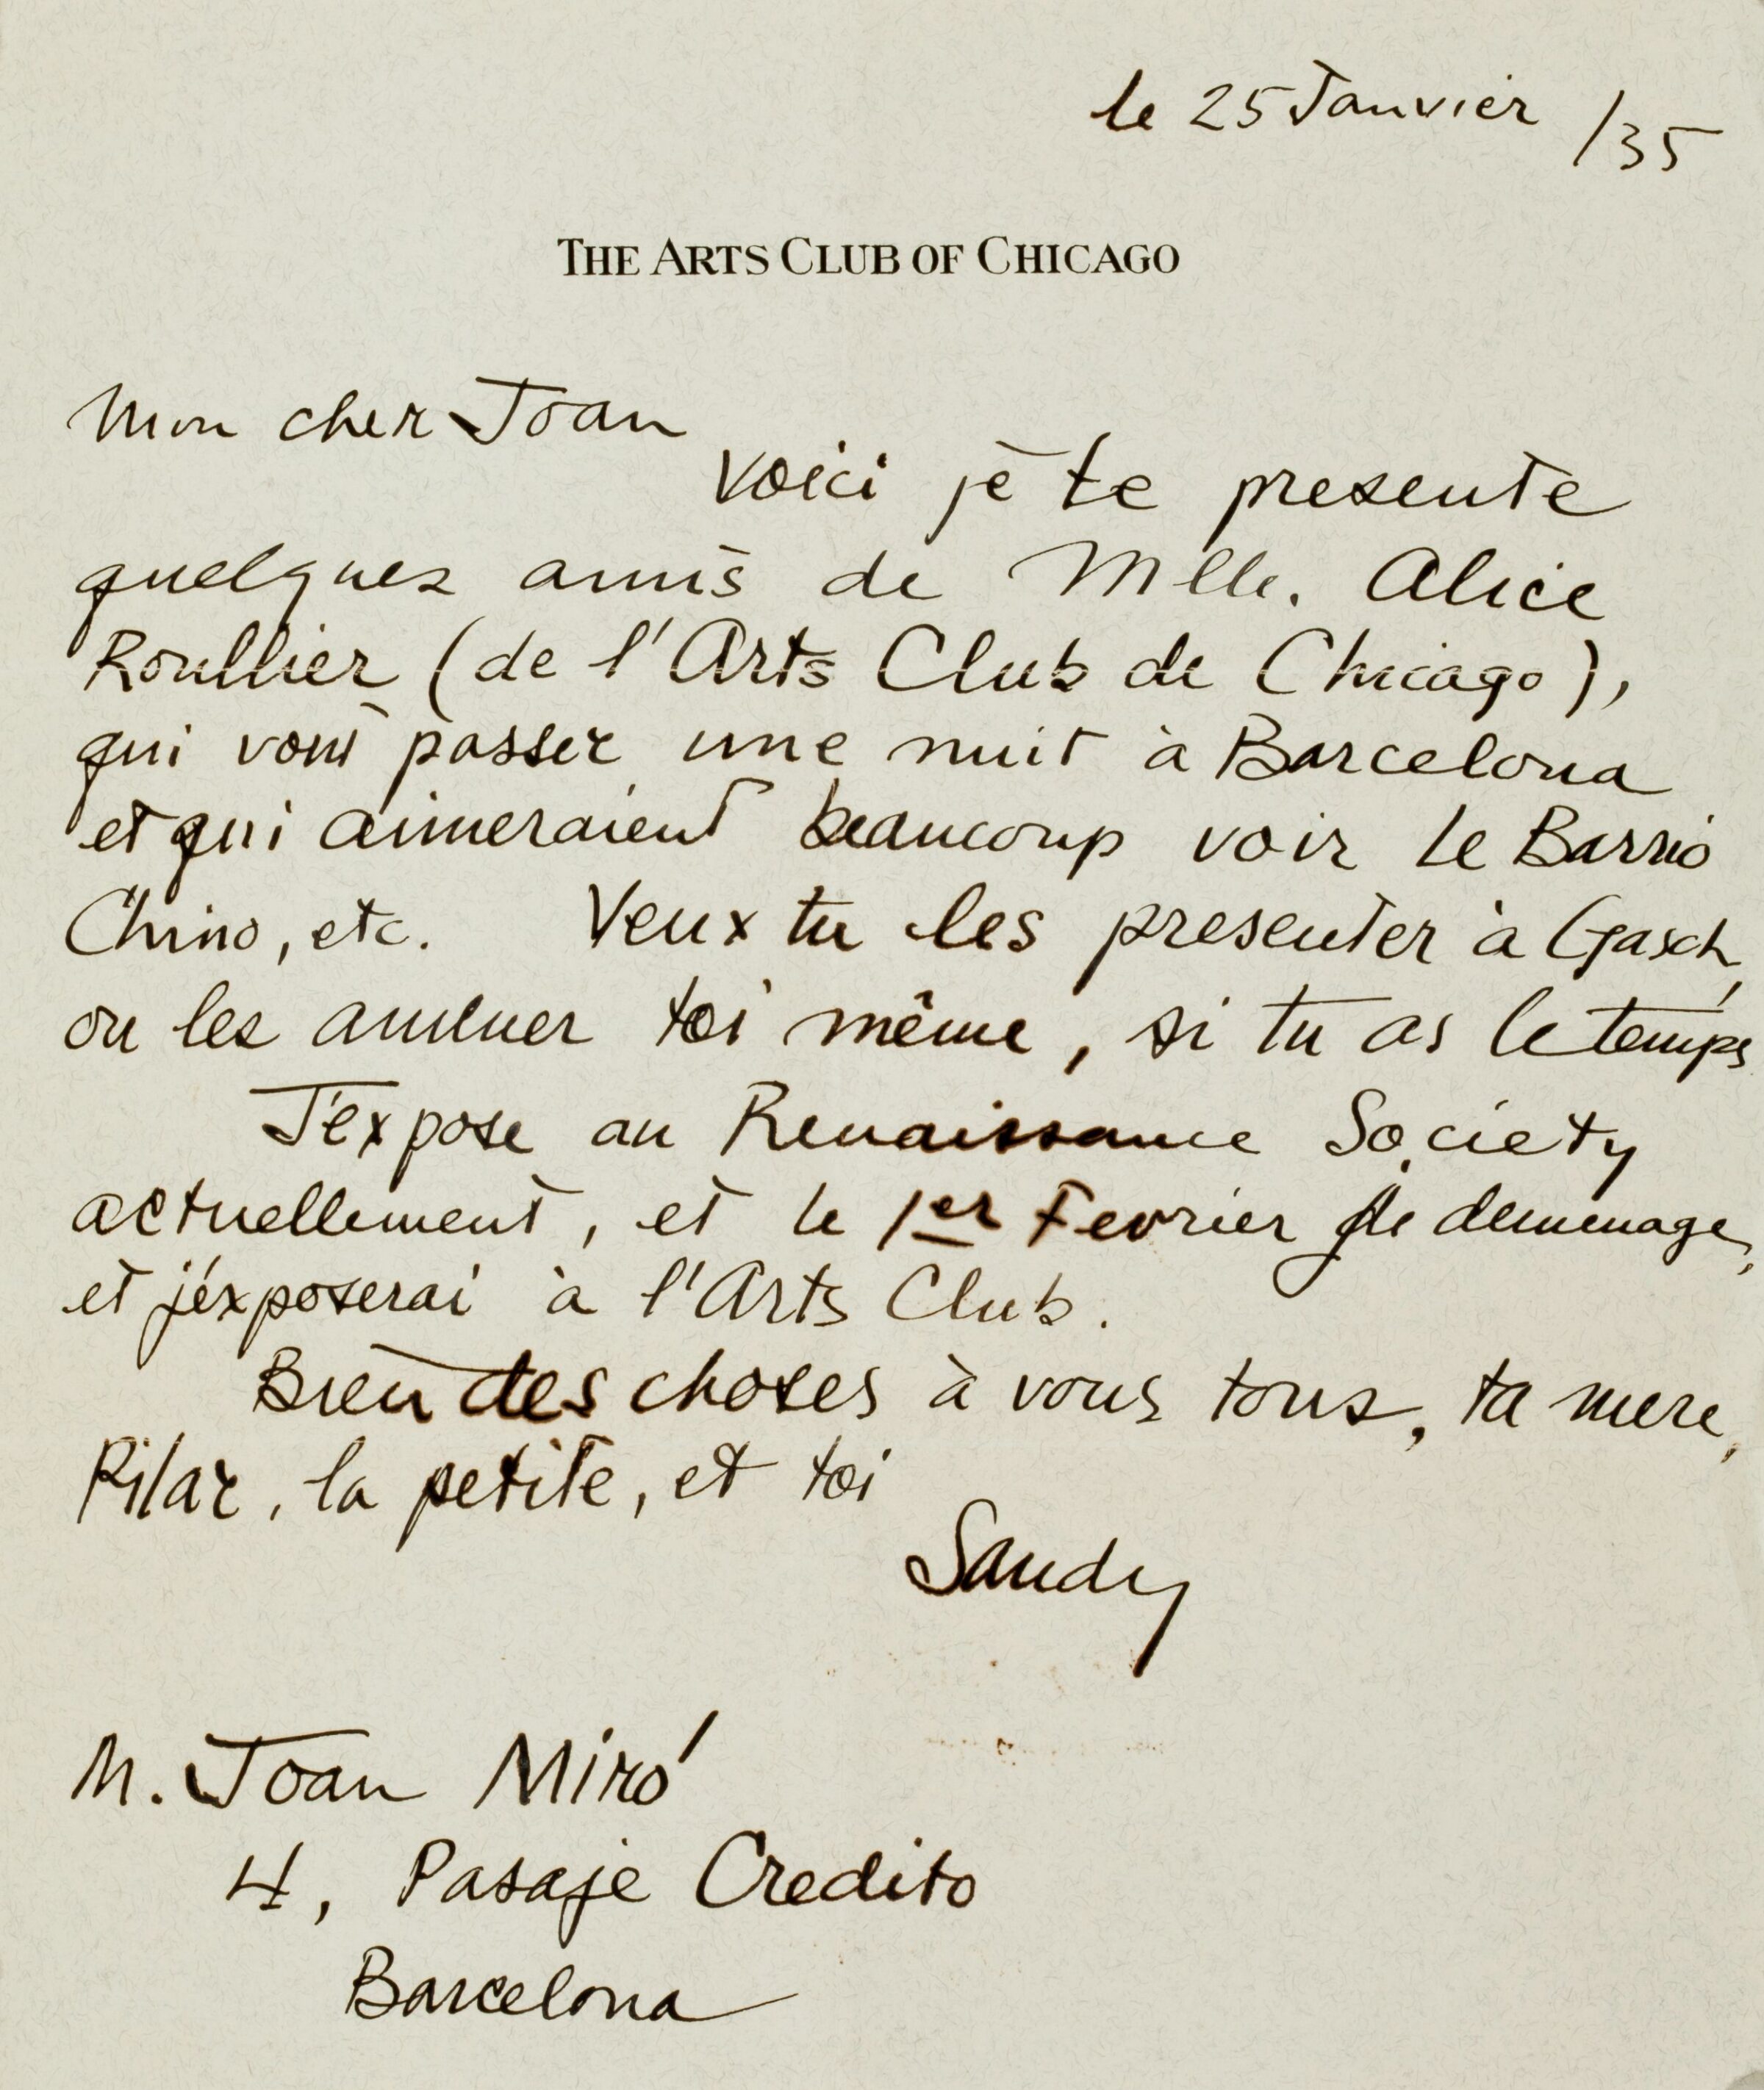 le 25 Janvier /35
THE ARTS CLUB OF CHICAGO
Mon cher Joan
Voici je te presente
quelques amis de Mlle. Alice
Roullier (de l'Arts Club de Chicago),
qui vont passer une nuit à Barcelona
et qui aimeraient beaucoup voir le Barrio
Chino, etc. Veux tu les presenter à Gasch,
ou les amener toi même, si tu as le temps
J'expose au Renaissance Society
actuellement, et le 1er Fevrier je demenage,
et j'exposerai à l'Arts Club.
Bien des choses à vous tous, ta mere,
Pilar, la petite, et toi
Sandy
M. Joan Miró
4, Pasaje Credito
Barcelona